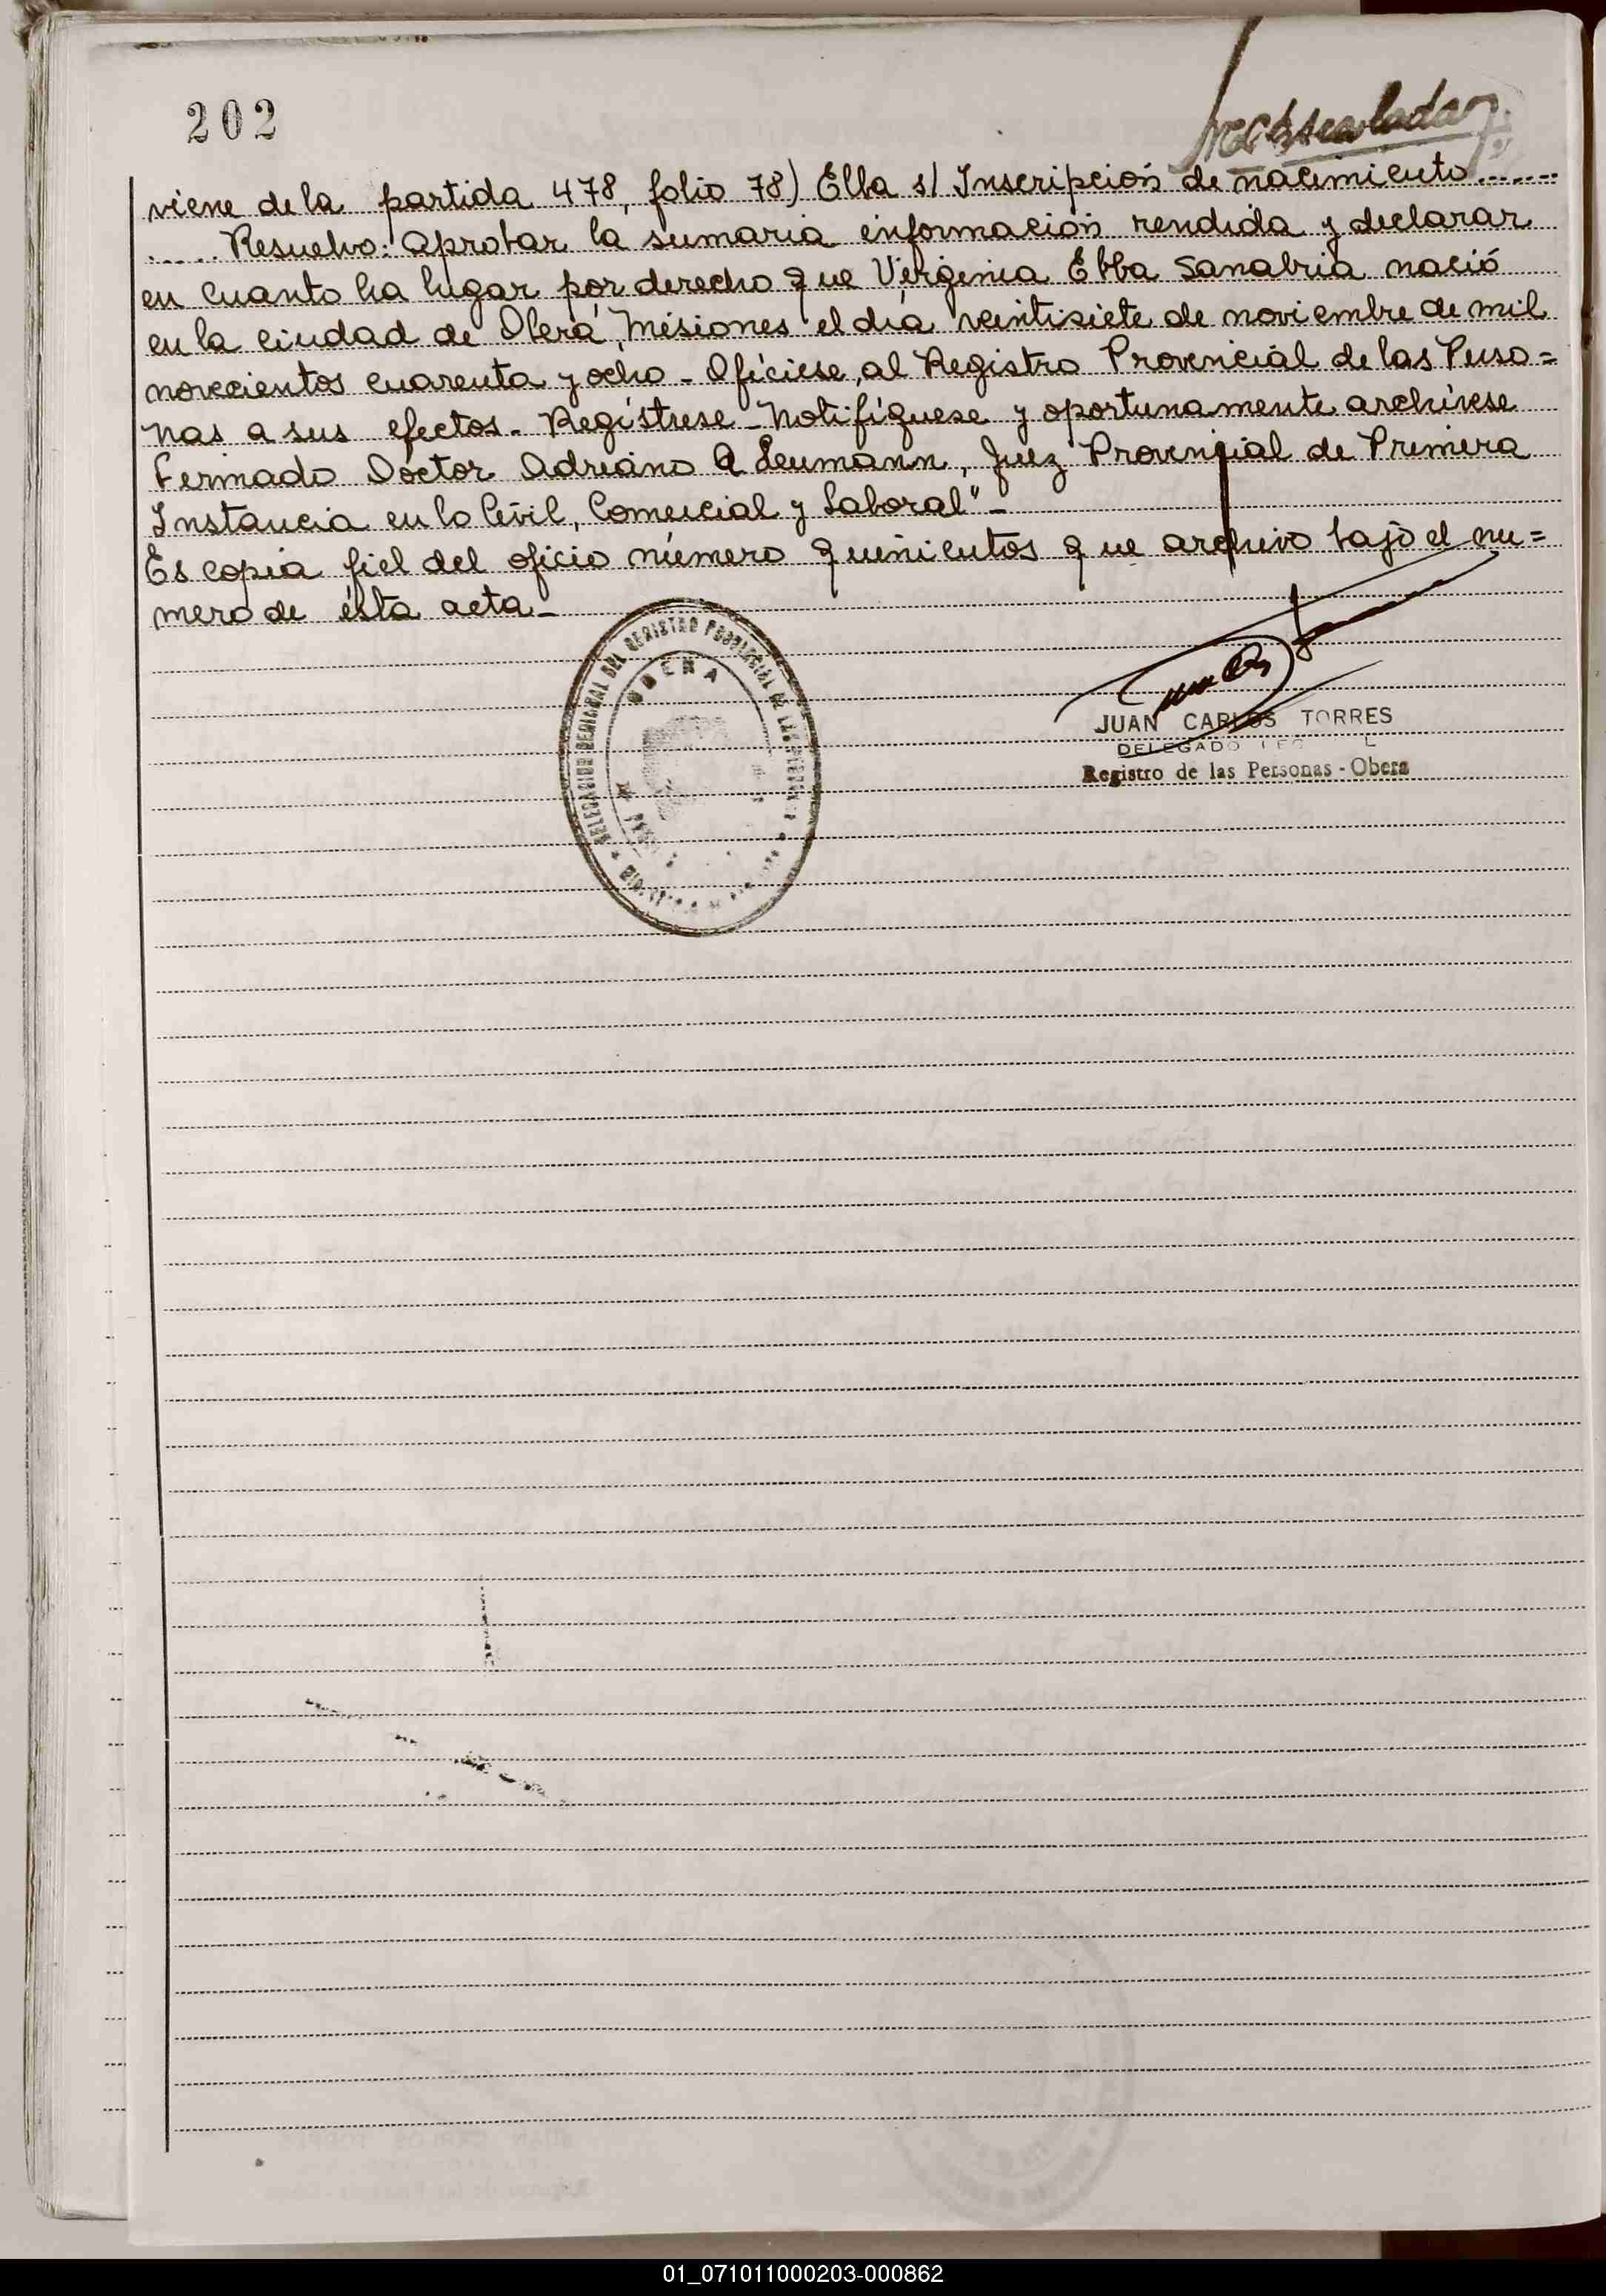 202
viene de la partida 478, folio 78) Elba s/ Inscripción de nacimiento.......
...... Resuelvo: aprobar la sumaria información rendida y declarar
en cuanto ha lugar por derecho que Virginia Ebba Sanabria nació
en la ciudad de Oberá, Misiones el día veintisiete de noviembre de mil
novecientos cuarenta y ocho - Ofíciese, al Registro Provincial de las Perso=
nas a sus efectos. Regístrese - Notifíquese y oportunamente archívese
Firmado Doctor Adriano A Leumann, Juez Provincial de Primera
Instancia en lo Civil, Comercial y Laboral" -
Es copia fiel del oficio número quinientos que archivo bajo el nu=
mero de ésta acta -
DELEGACION REGIONAL DEL REGISTRO PROVINCIAL DE LAS PERSONAS
OBERA
JUAN CARLOS TORRES
DELEGADO
Registro de las Personas - Obera
01_071011000203-000862